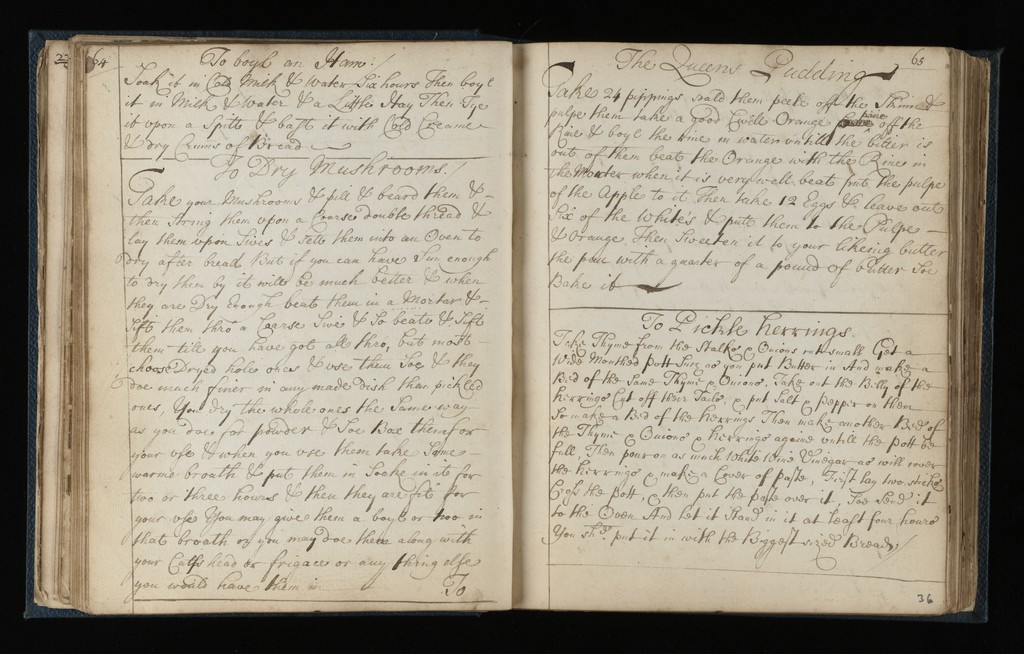 64
To boyl an Ham:/
Soak it in Cold Milk & Water Six hours Then boyl
it in Milk & Water & a Little Hay Then Tye
it upon a Spitt & bast it with Cold Creame
& dry Crums of Bread
To Dry Mushrooms/
Take your Mushrooms & pill & beard them &
then string them upon a Coarse double thread &
lay them upon Sives & sett them into an Oven to
dry after bread But if you can have Sun enough
to dry them by it will be much better & when
they are Dry Enough beat them in a Mortar &
Sift them thro a Coarse Sive & So beate & Sift
them till you have got all thro, but most
choose Dryed hole ones & use them Soe & they
doe much finer in any made Dish than pickled
ones, You dry the whole ones the Same way
as you doe for powder & Soe Box them for
your use & when you use them take Some
warme broath & put them in Soake in it for
two or three hours & then they are fitt for
your use You may give them a boyl or two in
that broath or you may doe them along with
your Calfs head or frigace or any thing else
you would have them in
To
65
The Queens Pudding
Take 24 pippings scald them peele off the Skinn &
pulpe them take a good Civelle Orange pare off the
Rine & boyl the Rine in water untill the bitter is
out of them beat the Orange with the Rine in
the Morter when it is very well beat put the pulpe
of the Apple to it Then take 12 Eggs & leave out
Six of the White's & putt them to the Pulpe
& Orange, Then Sweeten it to your likeing butter
the pan with a quarter of a pound of butter Soe
Bake it
To Pickle herrings.
Take Thyme from the Stalks & Onions cutt small Get a
Wide Mouthed Pott Such as you put Butter in And make a
Bed of the Same Thyme & Onions, Take out the Belly of the
herrings Cut off their Tails, & put Salt & Pepper on them
So make a Bed of the herrings Then make another Bed of
the Thyme & Onions & herrings againe untill the Pott be
full Then pour on as much White Wine Vinegar as will cover
the herrings & make a Cover of Paste, First lay two sticks
Cross the Pott, then put the Paste over it, Soe Send it
to the Oven And let it Stand in it at least four hours
You shd. put it in with the Biggest sized Bread/
36